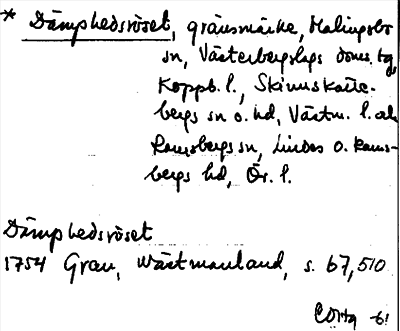 * Dämphedsröset, gränsmärke, Malingsbo
sn, Västerbergslags doms. tg,
Koppb. l., Skinnskatte-
bergs sn o. hd, Västm. l. och
Ramsbergs sn, Lindes o. Rams-
bergs hd, Ör. l.
Dämphedsröset
1754 Grau, Wästmanland, s. 67, 510